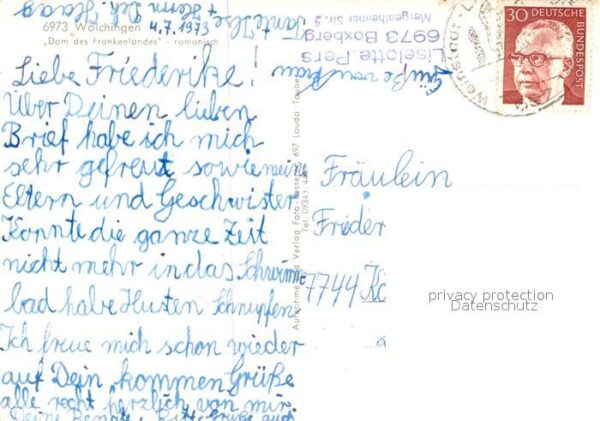 Tante Ilse
+ Herrn
4.7.1973
6973 Wölchingen
„Dom des Frankenlandes" - romanisch
Liebe Friederike!
Über Deinen lieben
Brief habe ich mich
sehr gefreut sowie meine
Eltern und Geschwister
Konnte die ganze Zeit
nicht mehr in das Schwimm=
bad habe Husten Schnupfen
Ich freue mich schon wieder
auf Dein kommen Grüße
alle recht herzlich von mir
Deine Renate. Bitte Grüße auch
Aufnahme und Verlag Foto 697 Lauda Tauber
Tel. 09343
Liselotte Pers
6973 Boxberg
Mergentheimer Str. 5
Grüße von
30 DEUTSCHE
BUNDESPOST
Weinstadt
Fräulein
Frieder
7744 Kö
privacy protection
Datenschutz